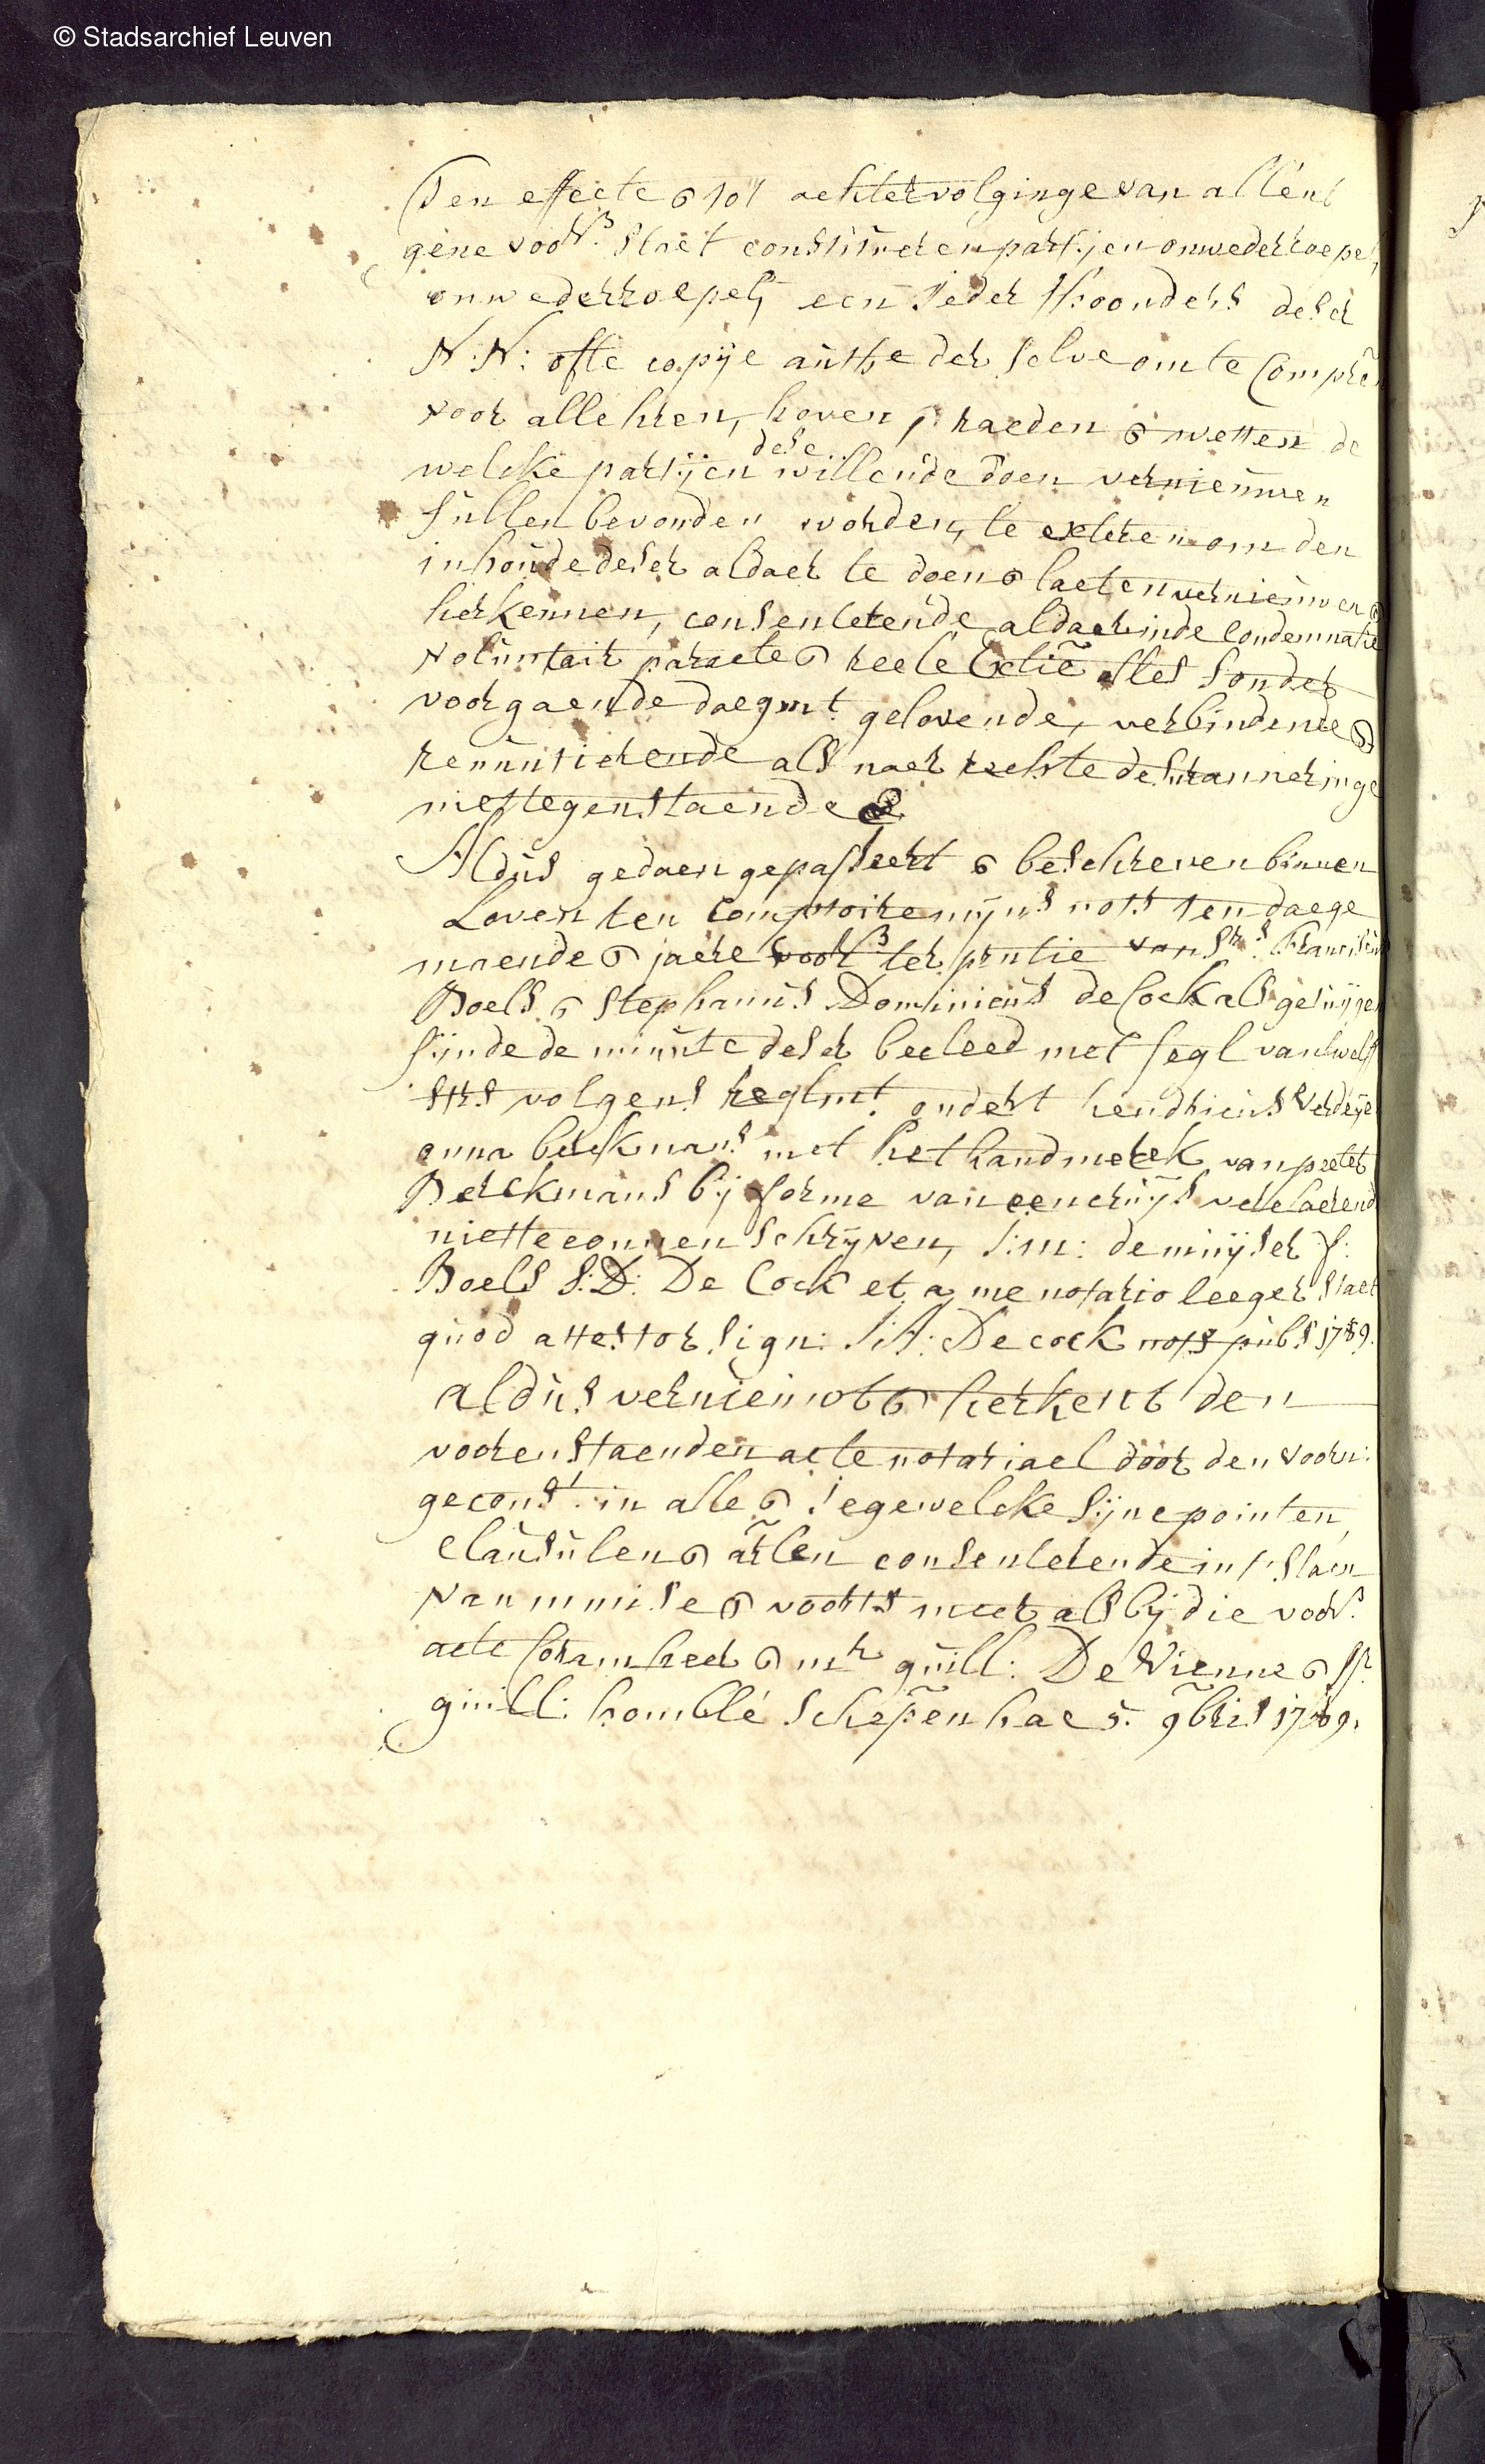 © Stadsarchief Leuven
Ten effecte & tot achtervolginge van allent
gene voors. staet constitueren partijen onwederroepel
onwederroepel een ieder thoonders deser
N:N: ofte copije authe der selve om te compre
voor alle hren, hoven, raeden & wetten de
dese
welcke partijen willende doen vernieuwen
sullen bevonden worden, te exteren om den
inhoude deser aldaer te doen & laeten vernieuwen &
herkennen, consenterende aldaer inde condemnatie
voluntair paraete & reele exctie stes sonder
voorgaende daegmt. gelovende, verbindende &
renuntierende als naer rechte deser manneringe
niettegenstaende
Aldus gedaen gepasseert & beschreven binnen
Loven ten comptoire mijns nots ten daege
maende & jaere voors ter pntie van Srs. Franciscus
Boels & Stephanus Dominicus de Cock als getuijgen
sijnde de minute deser becleed met segl van
sts volgens reglmt. ondert hendricus
anna berckmans met het handmerck van peeter
Berckmans bij forme van een cruijs verclaerend
niet te connen schrijven, J:M: demuijser f:
Boels S:D: De Cock et a me notario leeger staet
quod attestor sign: J:A: De cock nots pubs 1789.
aldus vernieuwt & herkent den
voorenstaenden acte notariael door den voorn:
geconst. in alle & iegewelcke sijne pointen,
clausulen & artlen consenterende in t'slaen
van mmise & voorts meer als bij die voors.
acte coram heer & mr guill: De Vienne & Sr.
guill: homblé schepen hac 5. 9bris 1789.